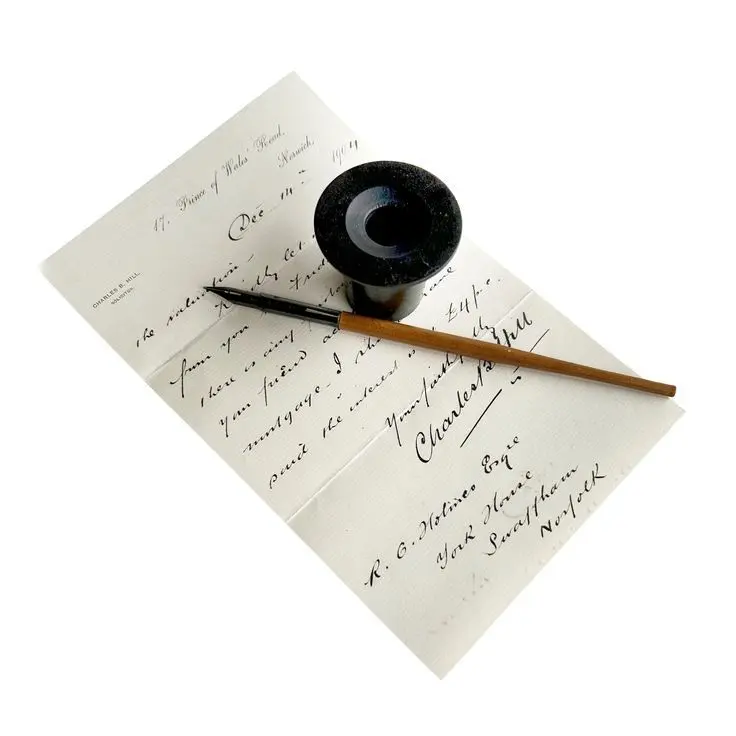 17, Prince of Wales' Road,
Norwich,
Dec 14th 1904
CHARLES R. HILL,
SOLICITOR.
the valuation.
let
from you
there is any
your friend
mortgage. I
paid the interest is £4 p.c.
Yours faithfully
Charles R Hill
R. C. Holmes Esqre
York House
Swaffham
Norfolk